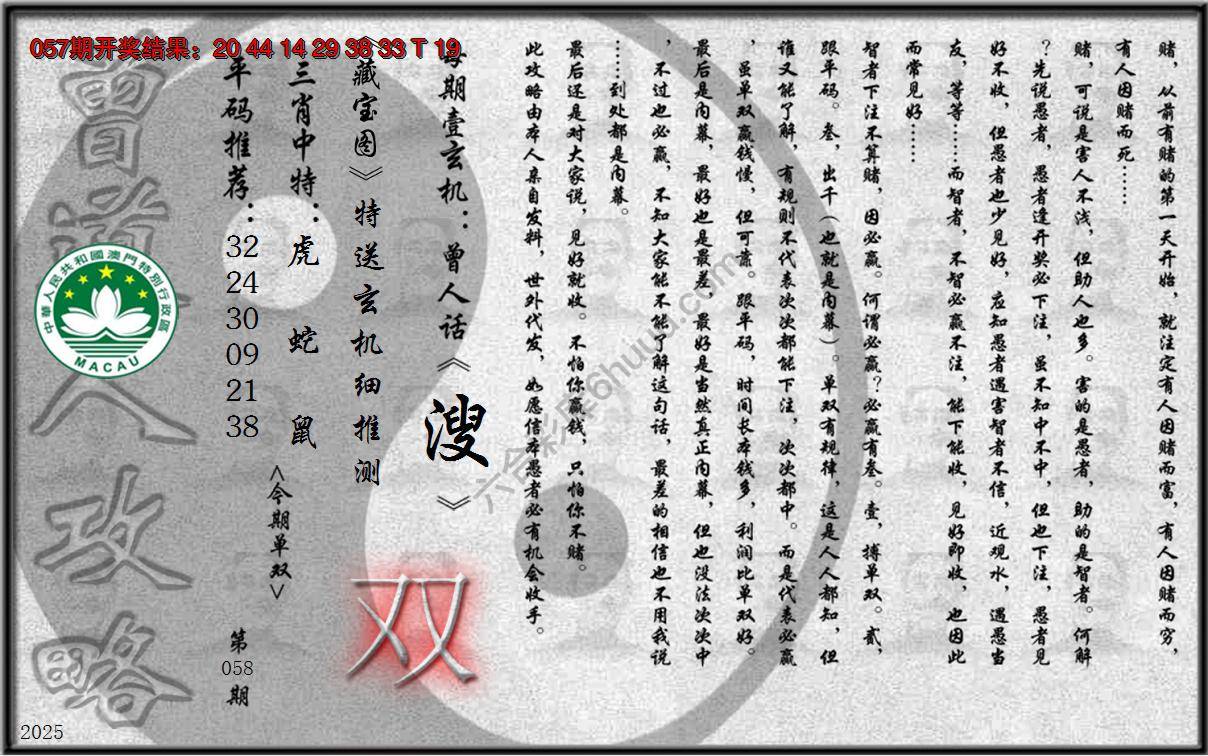 057期开奖结果：20 44 14 29 38 33 T 19
赌，从前有赌的第一天开始，就注定有人因赌而富，有人因赌而穷，
有人因赌而死……
赌，可说是害人不浅，但助人也多。害的是愚者，助的是智者。何解
？先说愚者，愚者逢开奖必下注，虽不知中不中，但也下注，愚者见
好不收，但愚者也少见好，应知愚者遇害智者不信，近观水，遇愚当
友，等等……而智者，不智必赢不注，能下能收，见好即收，也因此
而常见好……
智者下注不算赌，因必赢。何谓必赢？必赢有叁。壹，搏单双。贰，
跟平码。叁，出千（也就是内幕）。单双有规律，这是人人都知，但
谁又能了解，有规则不代表次次都能下注，次次都中。而是代表必赢
，虽单双赢钱慢，但可靠。跟平码，时间长本钱多，利润比单双好。
最后是内幕，最好也是最差，最好是当然真正内幕，但也没法次次中
，不过也必赢，不知大家能不能了解这句话，最差的相信也不用我说
……到处都是内幕。
最后还是对大家说，见好就收。不怕你赢钱，只怕你不赌。
此攻略由本人亲自发料，世外代发，如愿信本愚者必有机会收手。
每期壹玄机：曾人话《溲》
《藏宝图》特送玄机细推测
三肖中特：虎 蛇 鼠
平码推荐：
32
24
30
09
21
38
<今期单双>
双
第
058
期
曾道人攻略
中華人民共和國澳門特別行政區
MACAU
六合彩库6huuu.com
2025